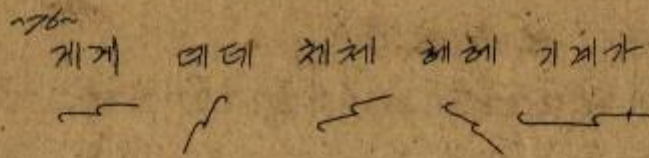 ~76~
게게 데데 체체 헤헤 기계가